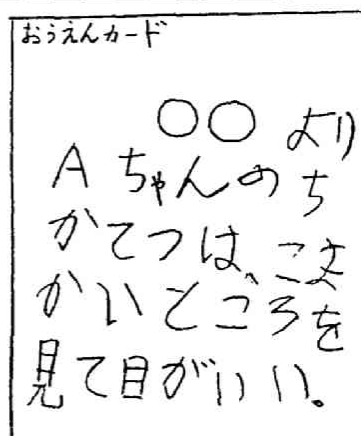 おうえんカード
○○より
Aちゃんのち
かてつは、こま
かいところを
見て目がいい。